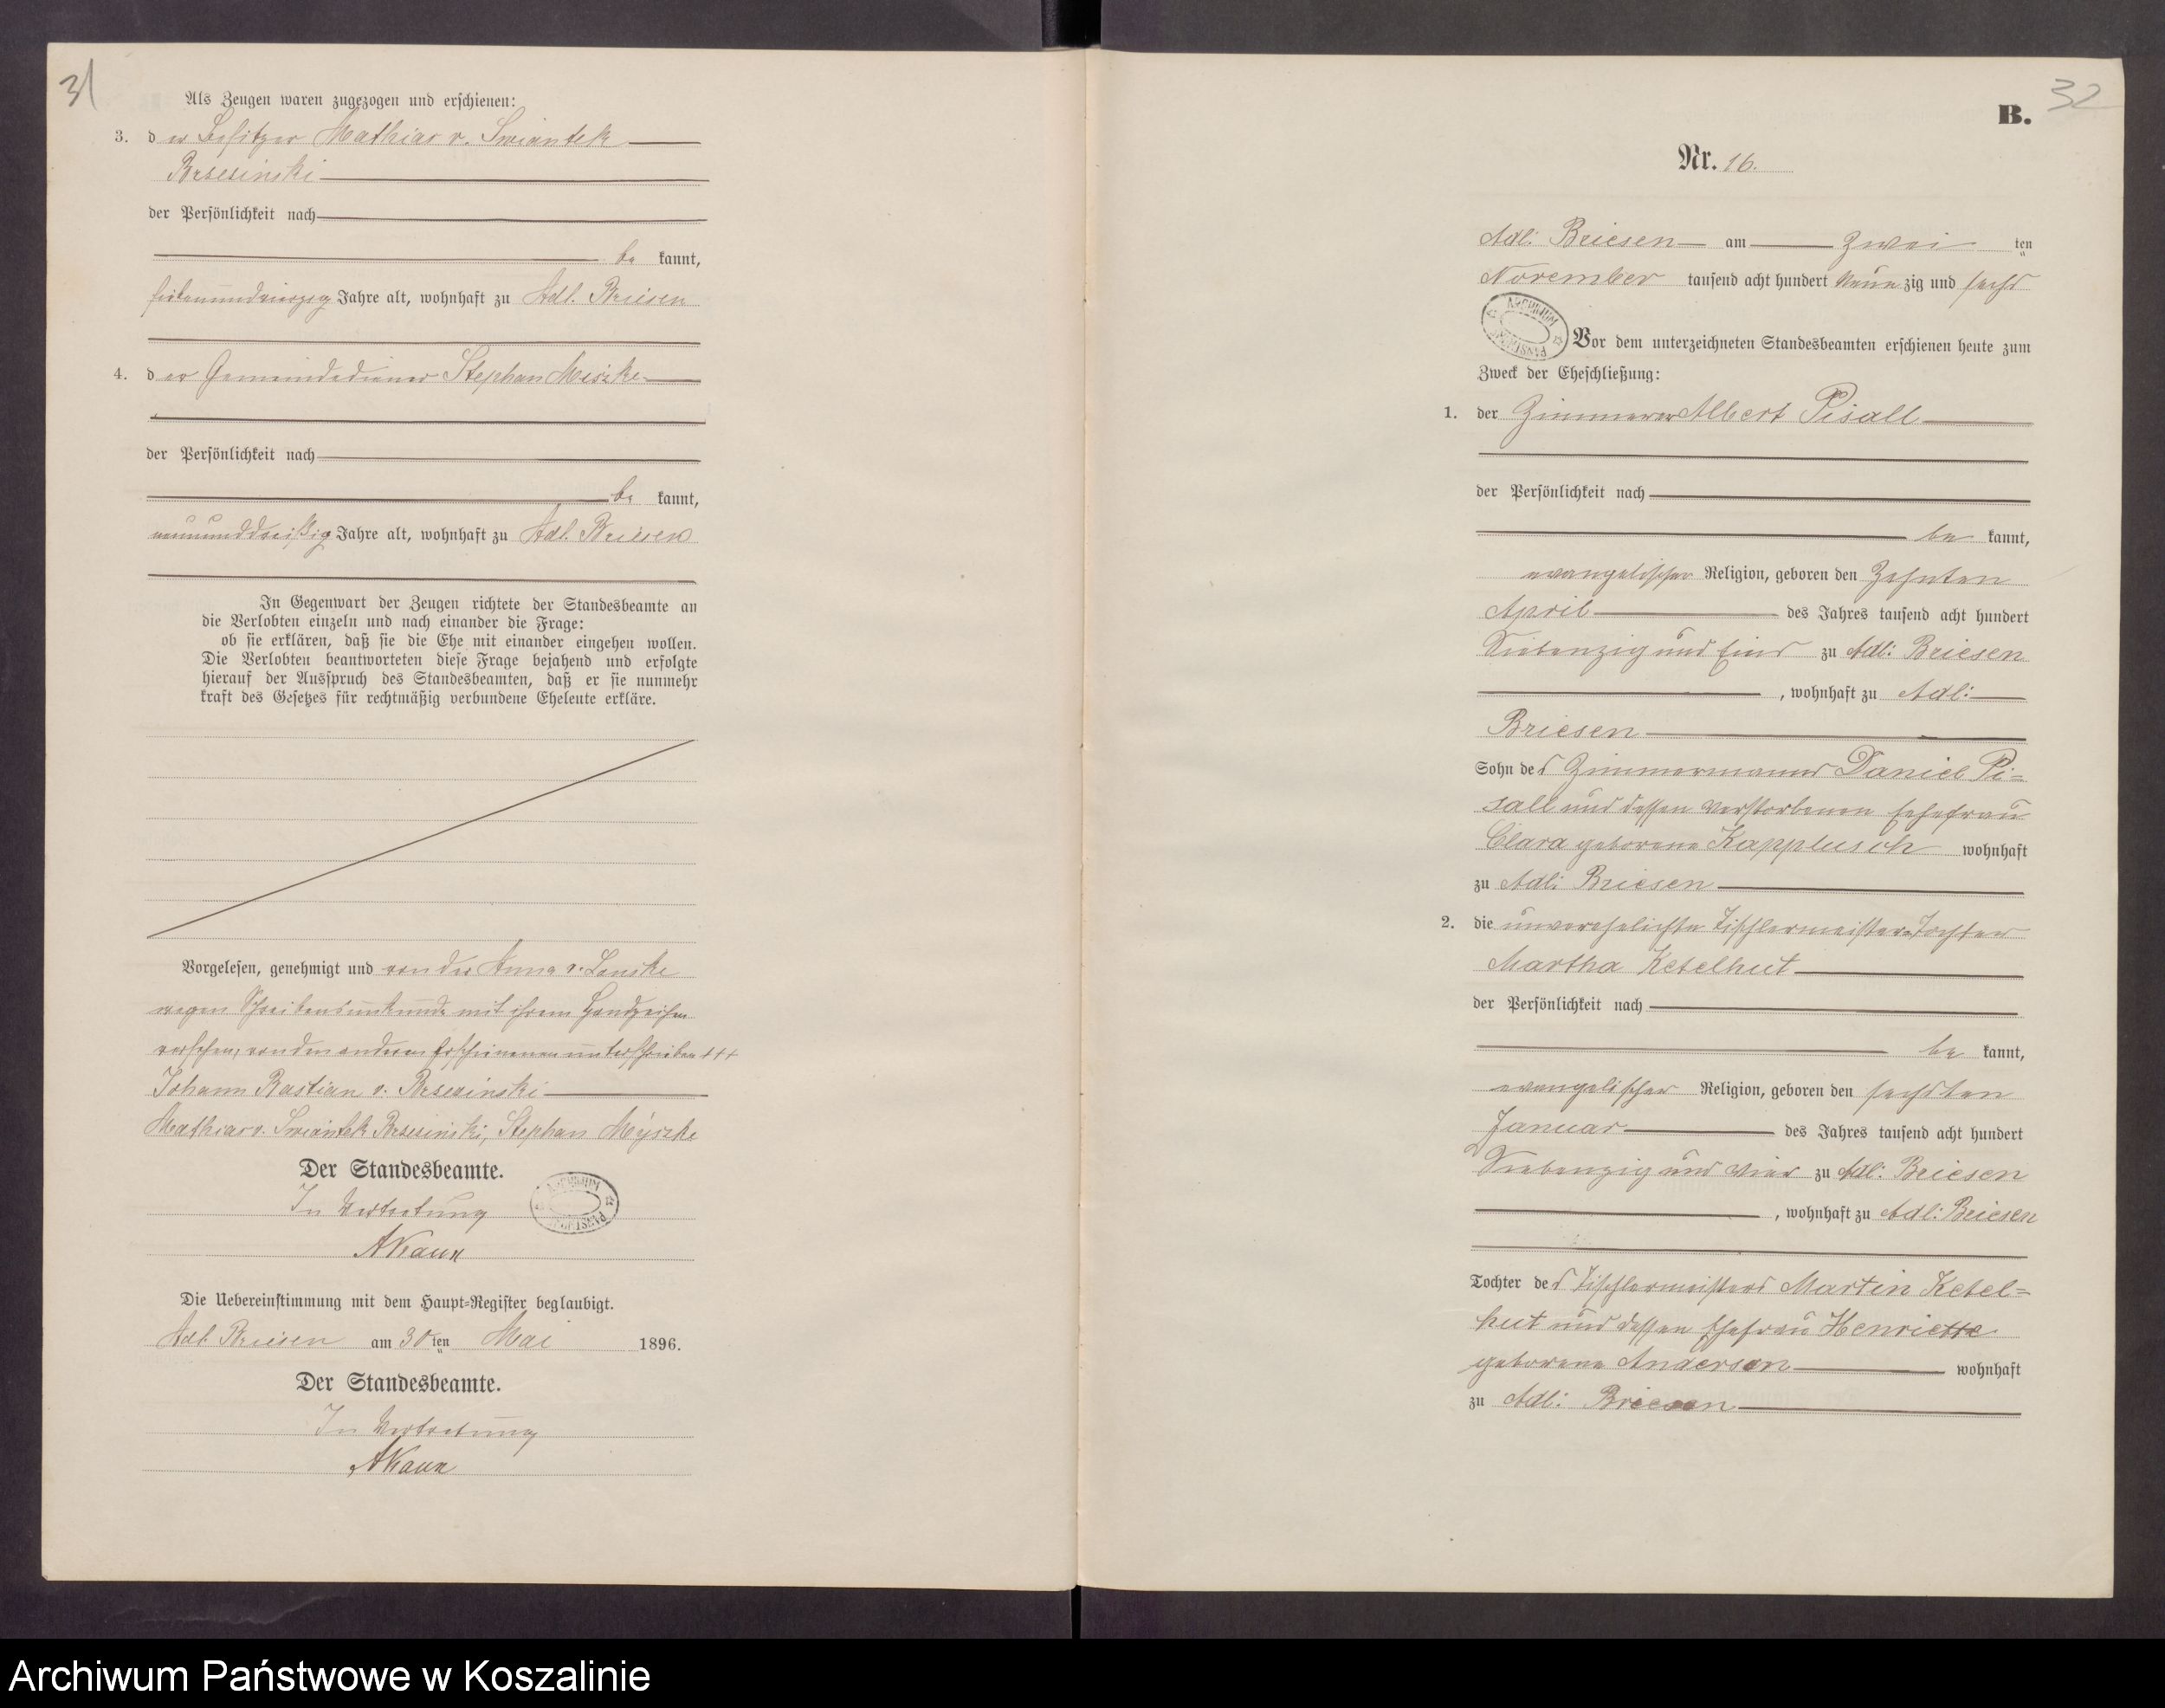 31
Als Zeugen waren zugezogen und erschienen:
3. der Besitzer Mathias v. Swiantek
Brsesinski
der Persönlichkeit nach
be kannt,
siebenundvierzig Jahre alt, wohnhaft zu Adl. Briesen
4. der Gemeindediener Stephan Miszke
der Persönlichkeit nach
be kannt,
neununddreißig Jahre alt, wohnhaft zu Adl. Briesen
In Gegenwart der Zeugen richtete der Standesbeamte an
die Verlobten einzeln und nach einander die Frage:
ob sie erklären, daß sie die Ehe mit einander eingehen wollen.
Die Verlobten beantworteten diese Frage bejahend und erfolgte
hierauf der Ausspruch des Standesbeamten, daß er sie nunmehr
kraft des Gesetzes für rechtmäßig verbundene Eheleute erkläre.
Vorgelesen, genehmigt und von der Anna v. Lonske
wegen Schreibensunkunde mit ihrem Handzeichen
versehen, von den anderen Erschienenen unterschrieben +++
Johann Bastian v. Brsesinski
Mathias v. Swiantek Brsesinski, Stephan Myszke
Der Standesbeamte.
In Vertretung
ARCHIWUM PAŃSTWOWE
Die Uebereinstimmung mit dem Haupt-Register beglaubigt.
Adl. Briesen am 30ten Mai 1896.
Der Standesbeamte.
In Vertretung
32
B.
Nr. 16.
Adl: Briesen am zwei ten
November tausend acht hundert neun zig und sechs
ARCHIWUM PAŃSTWOWE
Vor dem unterzeichneten Standesbeamten erschienen heute zum
Zweck der Eheschließung:
1. der Zimmerer Albert Pisall
der Persönlichkeit nach
be kannt,
evangelischer Religion, geboren den zehnten
April des Jahres tausend acht hundert
Siebenzig und Eins zu Adl: Briesen
, wohnhaft zu Adl:
Briesen
Sohn des Zimmermanns Daniel Pi=
sall und dessen verstorbenen Ehefrau
Clara geborene Kapplusch wohnhaft
zu Adl: Briesen
2. die unverehelichte Tischlermeister-Tochter
Martha Ketelhut
der Persönlichkeit nach
be kannt,
evangelischer Religion, geboren den sechsten
Januar des Jahres tausend acht hundert
Siebenzig und vier zu Adl: Briesen
, wohnhaft zu Adl: Briesen
Tochter des Tischlermeisters Martin Ketel=
hut und dessen Ehefrau Henriette
geborene Anderson wohnhaft
zu Adl: Briesen
Archiwum Państwowe w Koszalinie